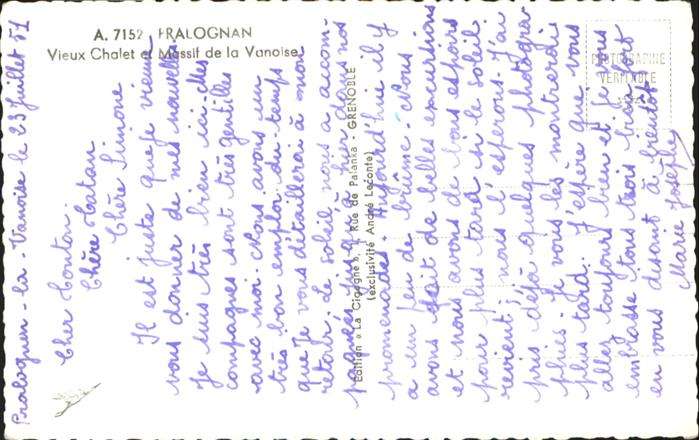 A. 7152 PRALOGNAN
Vieux Chalet et Massif de la Vanoise
PHOTOGRAPHIE
VERITABLE
Edition « La Cigogne », 1, Rue de Palanka - GRENOBLE
(exclusivité André Leconte)
Pralognan-la-Vanoise le 23 juillet 51
Cher Tonton.
Chère Tatan
Chère Simone
Il est juste que je vienne
vous donner de mes nouvelles.
Je suis très bien ici. Mes
compagnes sont très gentilles
avec moi. Nous avons un
très bon emploi du temps
que je vous détaillerai à mon
retour. Le soleil nous a accom-
pagnées jusqu'à hier dans nos
promenades. Aujourd'hui il y
a un peu de brume. Nous
avons fait de belles excursions
et nous avons de bons espoirs
pour plus tard si le soleil
revient, nous l'espérons. J'ai
pris déjà quelques photogra
phies. Je vous les montrerai
plus tard. J'espère que vous
allez toujours bien et je vous
embrasse tous trois bien fort
en vous disant à bientôt
Marie Josèphe